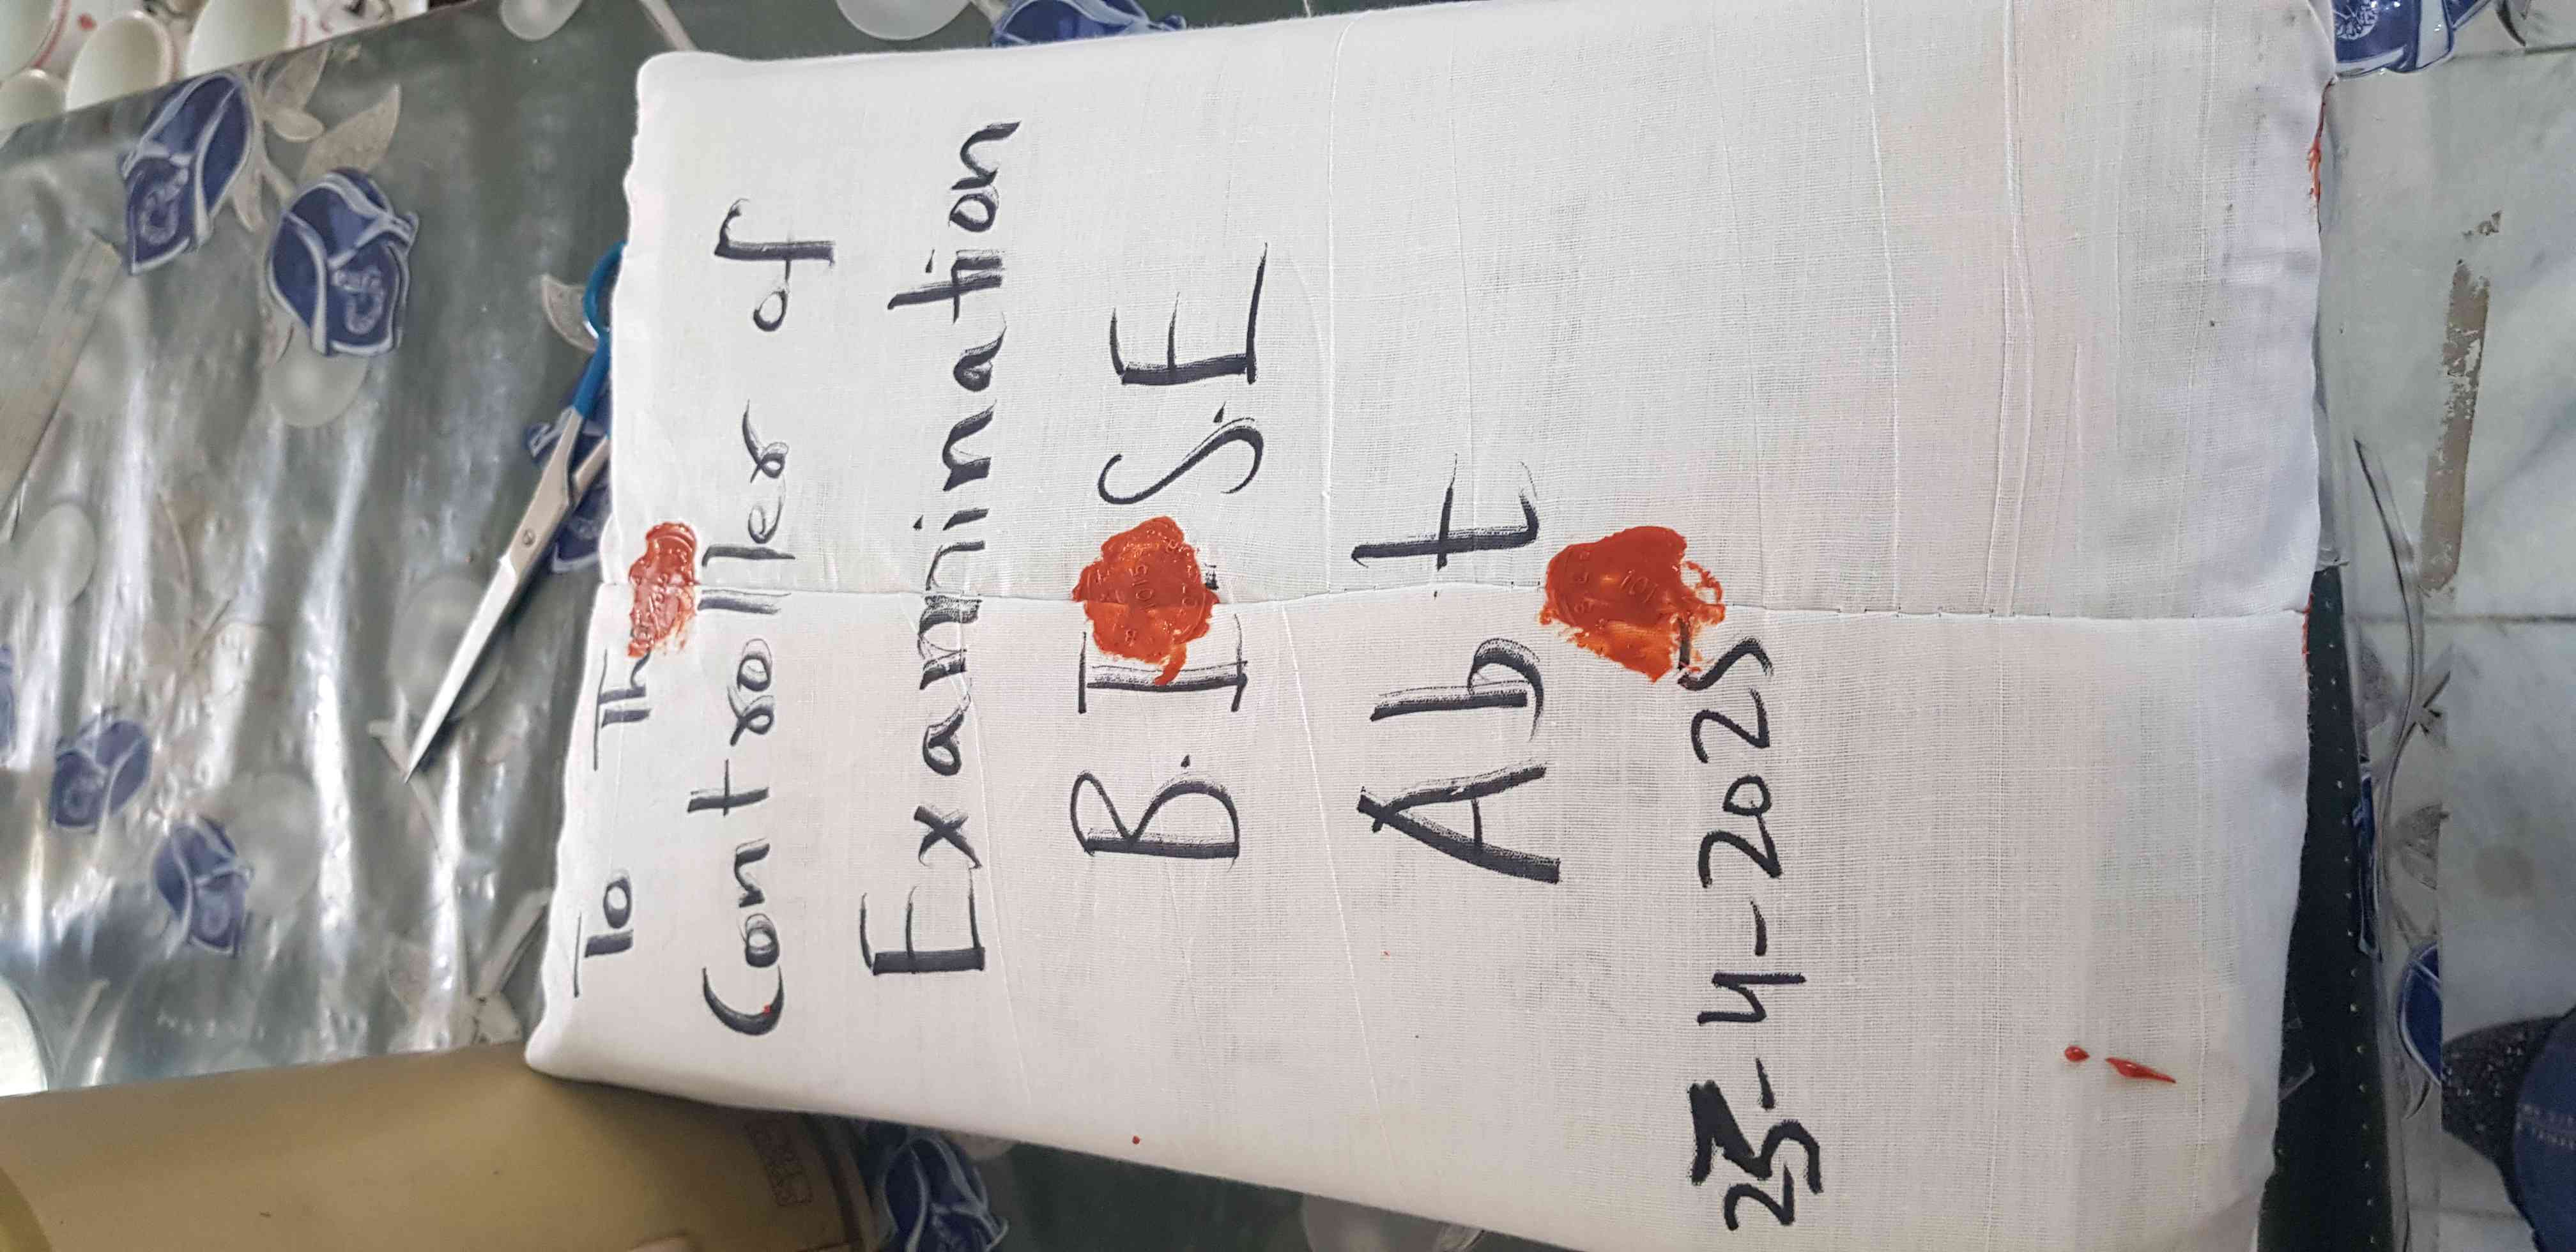 To The
Controller of
Examination
B.I.S.E
Abt
23-4-2025